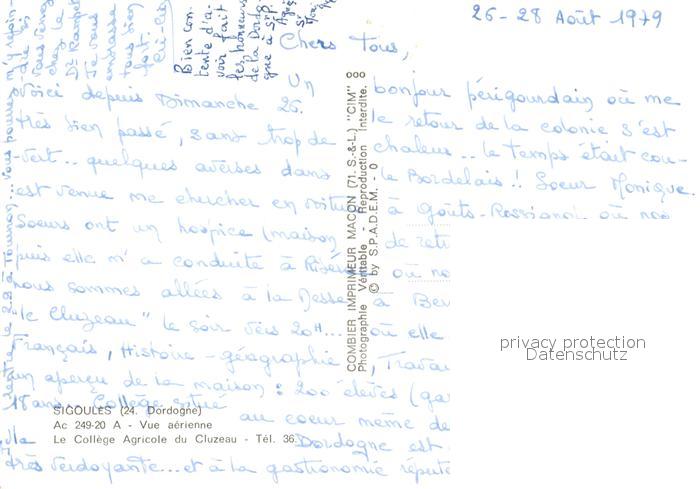 26-28 Août 1979
Chers Tous,
Un bonjour périgourdain où me
voici depuis Dimanche 26. le retour de la colonie s'est
très bien passé, sans trop de chaleur... le temps était cou-
vert... quelques averses dans le Bordelais!! Soeur Monique
est venue me chercher en voiture à Goûts-Rossignol où nos
Soeurs ont un hospice (maison de retr
puis elle m'a conduite à où no
nous sommes allées à la Messe à Be
"le Cluzeau" le soir vers 20H... où elle
Français, Histoire-géographie, Trava
un aperçu de la maison: 200 élèves (ga
18 ans. Collège situé au coeur même de
la Dordogne est
très verdoyante... et à la gastronomie réputé
Je rentre le 29 à Tournon... vous pourrez m'y rejoin-
vous venez
chez le
Dr
Je vous
embrasse
tous bien
fort.
Bien con-
tente d'a-
voir fait
les honneurs
de la Dordo-
gne à
SIGOULES (24. Dordogne)
Ac 249-20 A - Vue aérienne
Le Collège Agricole du Cluzeau - Tél. 36
COMBIER IMPRIMEUR MACON (71. S.-&-L.) "CIM"
Photographie Véritable - Reproduction Interdite.
© by S.P.A.D.E.M. - 0
privacy protection
Datenschutz